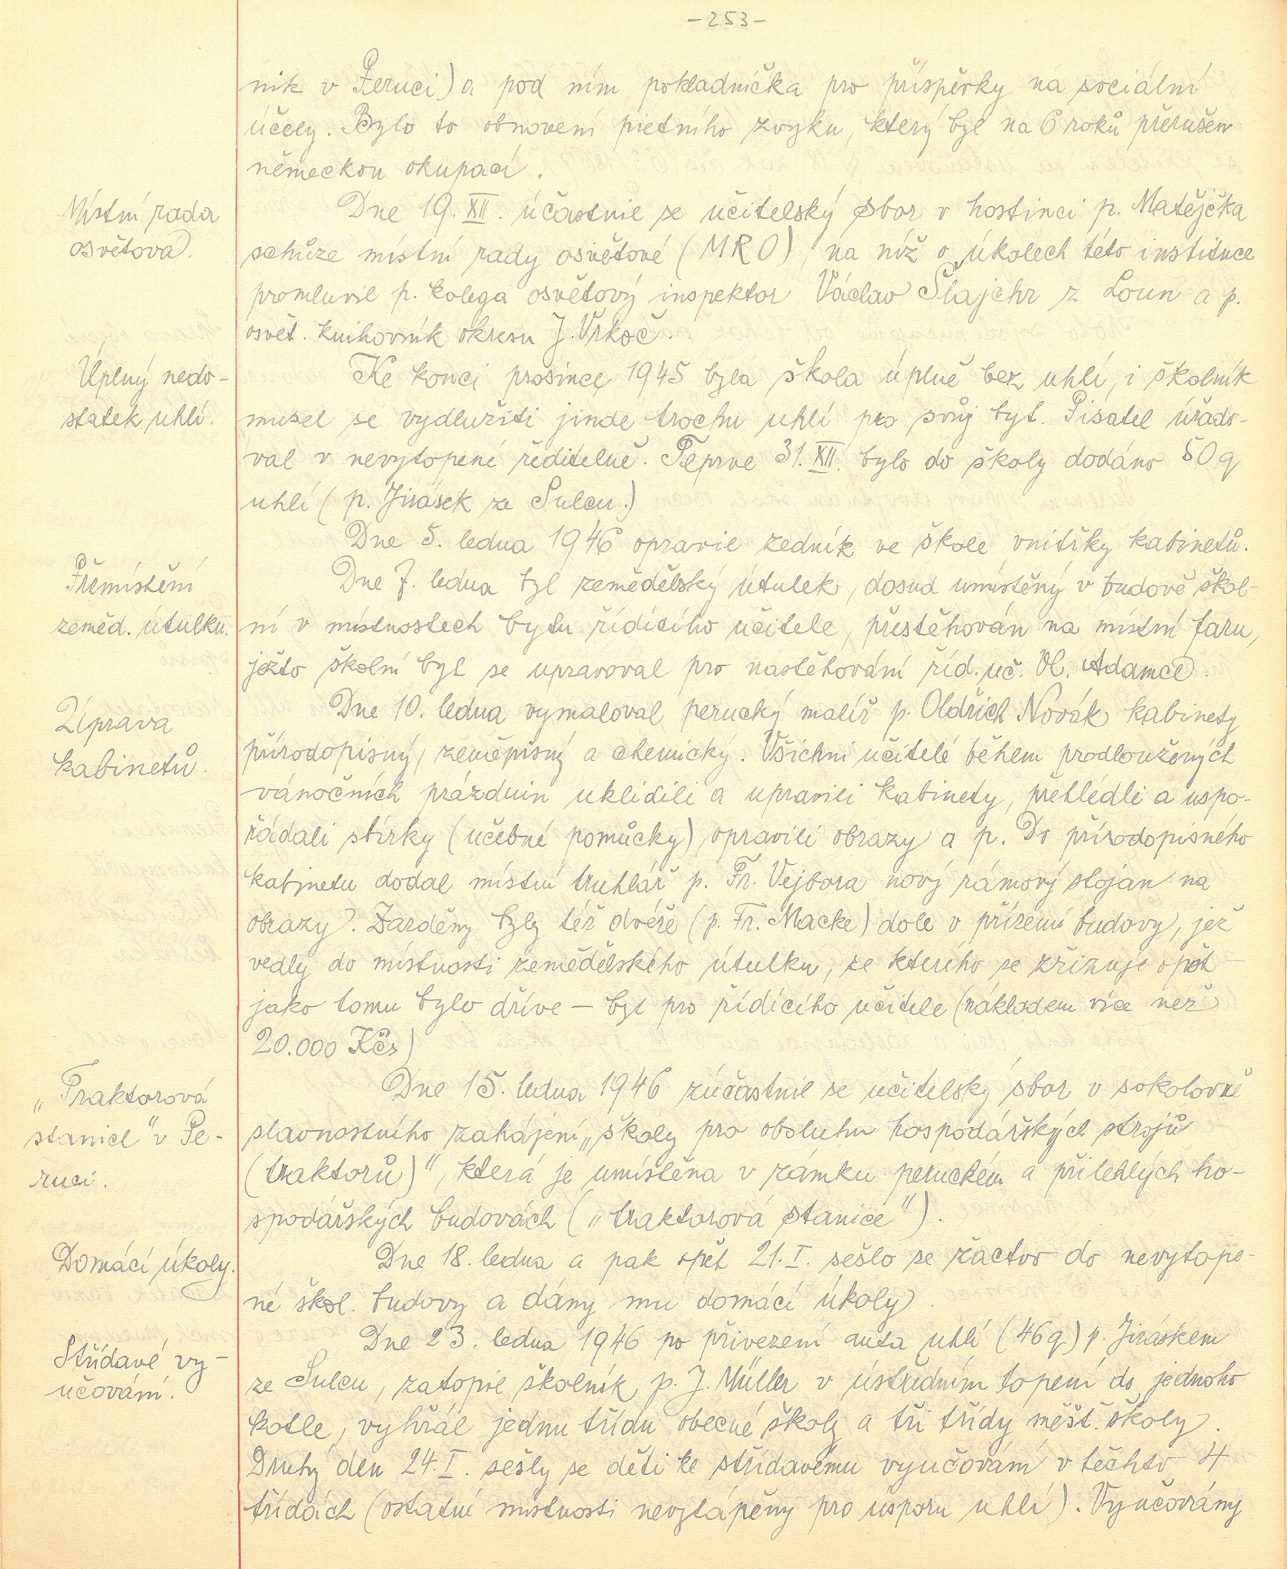 -253-
ník v Peruci) a pod ním pokladnička pro příspěvky na sociální
účely. Bylo to obnovení pietního zvyku, který byl na 6 roků přerušen
německou okupací.
Místní rada
osvětová.
Dne 19. XII. účastnil se učitelský sbor v hostinci p. Matějčka
schůze místní rady osvětové (MRO), na níž o úkolech této instituce
promluvil p. kolega osvětový inspektor Václav Šlajchr z Loun a p.
osvět. knihovník okresu J. Vrkoč.
Úplný nedo-
statek uhlí.
Ke konci prosince 1945 byla škola úplně bez uhlí, i školník
musel se vydlužiti jinde trochu uhlí pro svůj byt. Pisatel úřado-
val v nevytopené ředitelně. Teprve 31. XII. bylo do školy dodáno 50 q
uhlí (p. Jirásek ze Sulcu.)
Dne 5. ledna 1946 opravil zedník ve škole vnitřky kabinetů.
Přemístění
zeměd. útulku.
Dne 7. ledna byl zemědělský útulek, dosud umístěný v budově škol-
ní v místnostech bytu řídícího učitele, přestěhován na místní faru,
ježto školní byt se upravoval pro nastěhování říd. uč. Vl. Adamce.
Úprava
kabinetů.
Dne 10. ledna vymaloval perucký malíř p. Oldřich Novák kabinety
přírodopisný, zeměpisný a chemický. Všichni učitelé během prodloužených
vánočních prázdnin uklidili a upravili kabinety, přehlédli a uspo-
řádali sbírky (učebné pomůcky), opravili obrazy a p. Do přírodopisného
kabinetu dodal místní truhlář p. Fr. Vejbora nový rámový stojan na
obrazy. Zazděny byly též dvéře (p. Fr. Macke) dole v přízemí budovy, jež
vedly do místnosti zemědělského útulku, ze kterého se zřizuje opět -
jako tomu bylo dříve - byt pro řídícího učitele (nákladem více než
20.000 Kčs)
„Traktorová
stanice“ v Pe-
ruci.
Dne 15. ledna 1946 zúčastnil se učitelský sbor v sokolovně
slavnostního zahájení „školy pro obsluhu hospodářských strojů
(traktorů)“, která je umístěna v zámku peruckém a přilehlých ho-
spodářských budovách („traktorová stanice“).
Domácí úkoly.
Dne 18. ledna a pak opět 21. I. sešlo se žactvo do nevytope-
né škol. budovy a dány mu domácí úkoly.
Střídavé vy-
učování.
Dne 23. ledna 1946 po přivezení auta uhlí (46 q) p. Jiráskem
ze Sulcu, zatopil školník p. J. Müller v ústředním topení do jednoho
kotle, vyhřál jednu třídu obecné školy a tři třídy měšť. školy.
Druhý den 24. I. sešly se děti ke střídavému vyučování v těchto 4
třídách (ostatní místnosti nevytápěny pro úsporu uhlí). Vyučovány